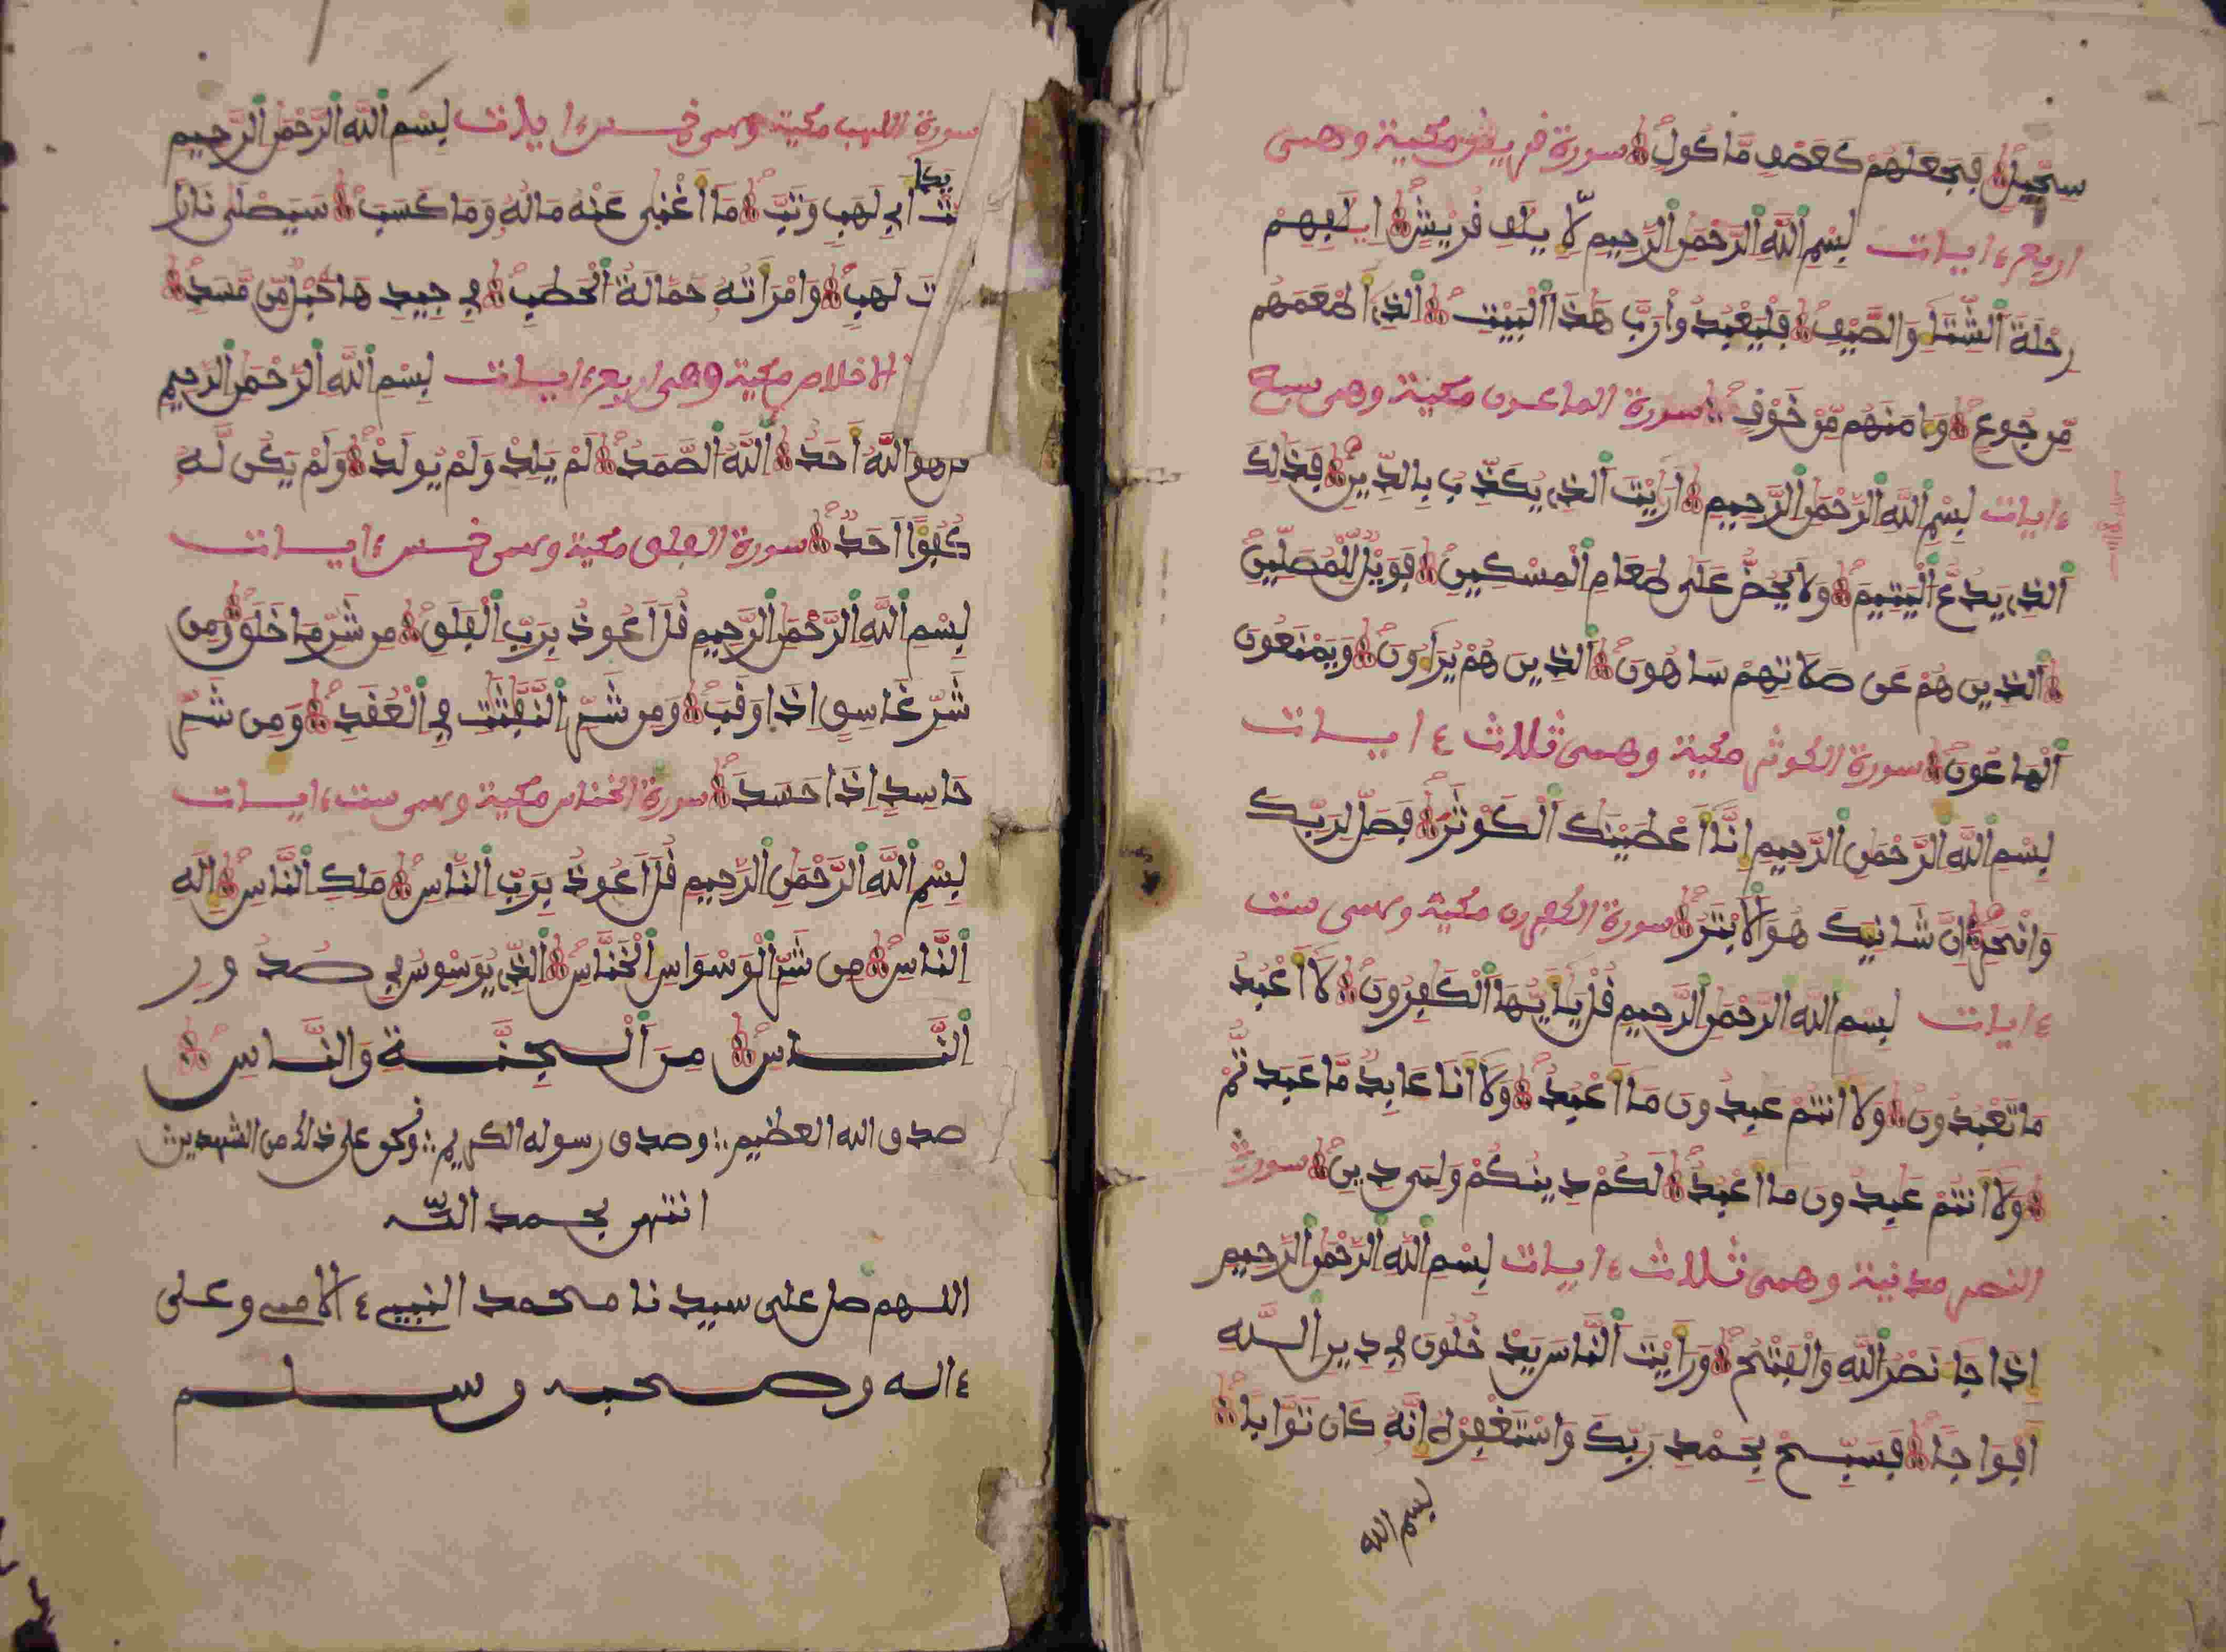 سِجِّيلٍ فَجَعَلَهُمْ كَعَصْفٍ مَّاكُولٍ سورة فريش مكية وهى
اربع ءايات بِسْمِ اللَّهِ الرَّحْمَنِ الرَّحِيمِ لِإِيلَفِ قُرَيْشٍ إِيلَفِهِمْ
رِحْلَةَ الشِّتَاءِ وَالصَّيْفِ فَلْيَعْبُدُوا رَبَّ هَذَا الْبَيْتِ الَّذِي أَطْعَمَهُم
مِّن جُوعٍ وَءَامَنَهُم مِّنْ خَوْفٍ سورة الماعون مكية وهى سبع
ءايات بِسْمِ اللَّهِ الرَّحْمَنِ الرَّحِيمِ أَرَيْتَ الَّذِي يُكَذِّبُ بِالدِّينِ فَذَلِكَ
الَّذِي يَدُعُّ الْيَتِيمَ وَلَا يَحُضُّ عَلَى طَعَامِ الْمِسْكِينِ فَوَيْلٌ لِّلْمُصَلِّينَ
الَّذِينَ هُمْ عَن صَلَاتِهِمْ سَاهُونَ الَّذِينَ هُمْ يُرَاءُونَ وَيَمْنَعُونَ
الْمَاعُونَ سورة الكوثر مكية وهى ثلاث ءايات
بِسْمِ اللَّهِ الرَّحْمَنِ الرَّحِيمِ إِنَّا أَعْطَيْنَكَ الْكَوْثَرَ فَصَلِّ لِرَبِّكَ
وَانْحَرْ إِنَّ شَانِيَكَ هُوَ الْأَبْتَرُ سورة الكفرون مكية وهى ست
ءايات بِسْمِ اللَّهِ الرَّحْمَنِ الرَّحِيمِ قُلْ يَا أَيُّهَا الْكَفِرُونَ لَا أَعْبُدُ
مَا تَعْبُدُونَ وَلَا أَنتُمْ عَبِدُونَ مَا أَعْبُدُ وَلَا أَنَا عَابِدٌ مَّا عَبَدتُّمْ
وَلَا أَنتُمْ عَبِدُونَ مَا أَعْبُدُ لَكُمْ دِينُكُمْ وَلِىَ دِينِ سورة
النصر مدنية وهى ثلاث ءايات بِسْمِ اللَّهِ الرَّحْمَنِ الرَّحِيمِ
إِذَا جَاءَ نَصْرُ اللَّهِ وَالْفَتْحُ وَرَأَيْتَ النَّاسَ يَدْخُلُونَ فِي دِينِ اللَّهِ
أَفْوَاجًا فَسَبِّحْ بِحَمْدِ رَبِّكَ وَاسْتَغْفِرْهُ إِنَّهُ كَانَ تَوَّابًا
بسم الله
سورة اللهب مكية وهى خمس ءايات بِسْمِ اللَّهِ الرَّحْمَنِ الرَّحِيمِ
يدا
تْ أَبِي لَهَبٍ وَتَبَّ مَا أَغْنَى عَنْهُ مَالُهُ وَمَا كَسَبَ سَيَصْلَى نَارًا
تَ لَهَبٍ وَامْرَأَتُهُ حَمَّالَةُ الْحَطَبِ فِي جِيدِهَا حَبْلٌ مِّن مَّسَدٍ
الاخلاص مكية وهى اربع ءايات بِسْمِ اللَّهِ الرَّحْمَنِ الرَّحِيمِ
هُوَ اللَّهُ أَحَدٌ اللَّهُ الصَّمَدُ لَمْ يَلِدْ وَلَمْ يُولَدْ وَلَمْ يَكُن لَّهُ
كُفُؤًا أَحَدٌ سورة الفلق مكية وهى خمس ءايات
بِسْمِ اللَّهِ الرَّحْمَنِ الرَّحِيمِ قُلْ أَعُوذُ بِرَبِّ الْفَلَقِ مِن شَرِّ مَا خَلَقَ وَمِن
شَرِّ غَاسِقٍ إِذَا وَقَبَ وَمِن شَرِّ النَّفَّثَتِ فِي الْعُقَدِ وَمِن شَرِّ
حَاسِدٍ إِذَا حَسَدَ سورة الخناس مكية وهى ست ءايات
بِسْمِ اللَّهِ الرَّحْمَنِ الرَّحِيمِ قُلْ أَعُوذُ بِرَبِّ النَّاسِ مَلِكِ النَّاسِ إِلَهِ
النَّاسِ مِن شَرِّ الْوَسْوَاسِ الْخَنَّاسِ الَّذِي يُوَسْوِسُ فِي صُدُورِ
النَّاسِ مِنَ الْجِنَّةِ وَالنَّاسِ
صدق الله العظيم وصدق رسوله الكريم ونحن على ذلك من الشهدين
انتهى بحمد الله
اللهم صل على سيدنا محمد النبيء الامي وعلى
ءاله وصحبه وسلم